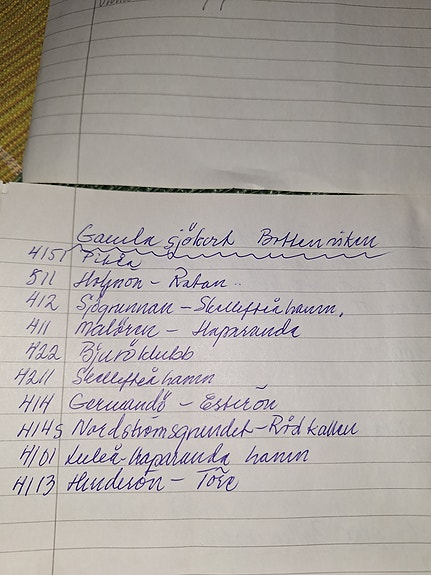 Gamla sjökort Bottenviken
4151 Piteå
511 Holmön - Ratan
412 Sjögrunnan - Skellefteåhamn,
411 Malören - Haparanda
422 Bjuröklubb
4211 Skellefteåhamn
414 Germandö - Esterön
414S Nordströmsgrundet - Rödkallen
4101 Luleå - haparanda hamn
4113 Hindersön - Töre